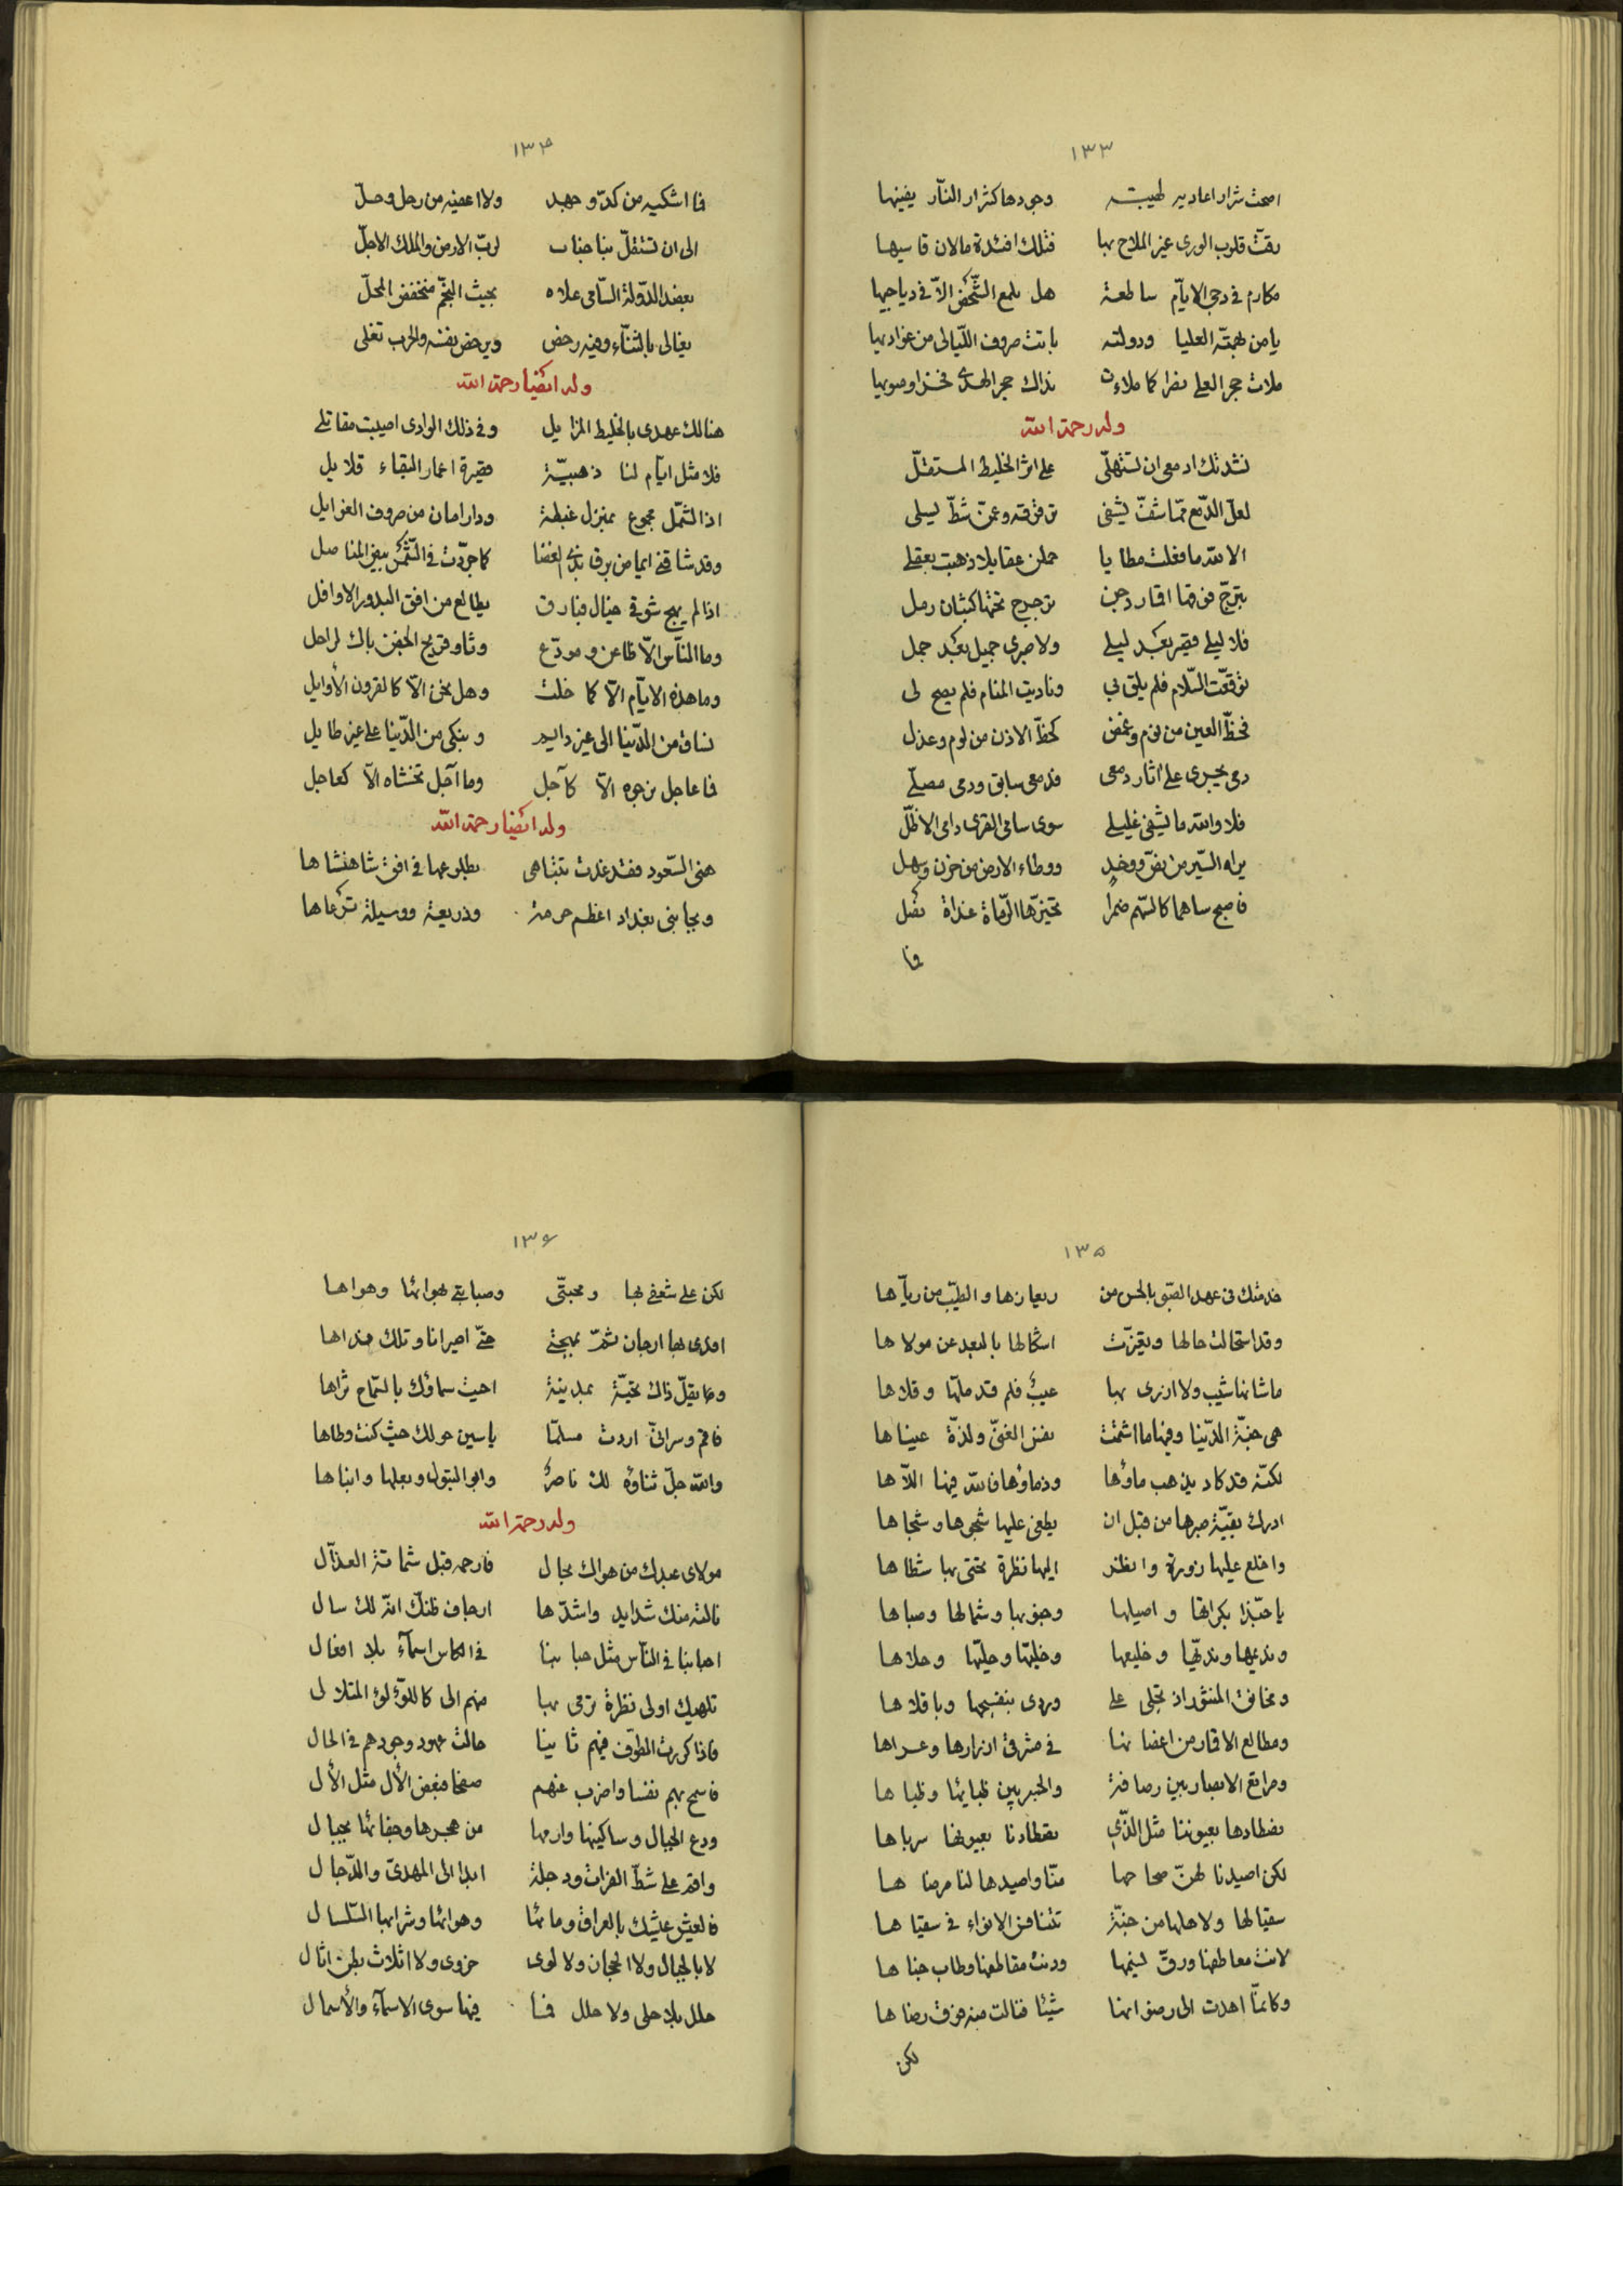 ١٣٣
اضحت شرار اعاديه لهيبته وجودها كشرار النار يفنيها
رقت قلوب الورى غير الملاح بها فتلك افئدة مالان قاسيها
مكارم فى دجى الايام ساطعة هل يلمع الشخص الا فى دياجيها
يا من بهمته العليا ودولته باتت صروف الليالى من عواديها
ملات حجر العلى كما ملاءت نداك حجر الهدى فخرا
وله رحمة الله
نشدتك ادمعى ان تستهلى على اثر الخليط المستقل
لعل الدمع مما شف يشفى من فرقته وعن شط ليلى
الا لله ما فعلت مطايا حملن عقايلا ذهبت بعقلى
ترجرج تحتها كثبان رمل
فلا ليلى قصير بعد ليلى ولا صبرى جميل بعد جمل
توقعت السلام فلم يلق بى وناديت المنام فلم يصح لى
فحظ العين من نوم وغمض كحظ الاذن من لوم وعذل
دمى يجرى على اثار دمعى فدمعى سابق ودمى مصلى
فلا والله ما يشفى غليلى سوى سامى القرى دامى الاظل
براه السير من نص ووخد ووطاء الارض من حزن وسهل
فاصبح ساهما كالسهم ضمرا تخيرها الرماة غداة نضل
فا
١٣٤
فا اشكيه من كد وجهد ولا اعفيه من رحل وحل
الى ان تستقل بنا جناب لرب الارض والملك الاجل
بعضد الدولة السامى علاه بحيث النجم منخفض المحل
يغالى بالثناء وفيه رخص ويرخص نفسه والحرب تغلى
وله ايضا رحمة الله
هنالك عهدى بالخليط المزايل وفى ذلك الوادى اصيبت مقاتلى
فلا مثل ايام لنا ذهبية قصيرة اعمار البقاء قلايل
اذا الشمل مجموع بمنزل غبطة ودار امان من صروف الغوايل
وقد شاقنى ايماض برق بذى الغضا كما جردت فى الشمس بيض المناصل
اذا لم يهج شوقى خيال مفارق يطالع من افق البدور الاوافل
وما الناس الا ظاعن ومودع وثاو قريح الجفن باك لراحل
وما هذه الايام الا كما خلت وهل نحن الا كالقرون الأوايل
نساق من الدنيا الى غير دايم ونبكى من الدنيا على غير طايل
فا عاجل نرجوه الا كآجل وما آجل نخشاه الا كعاجل
وله ايضا رحمة الله
هنى السعود فقد غدت تتباهى بطلوعها فى افق شاهنشاها
وبجانبى بغداد اعظم حرمة وذريعة ووسيلة ترعاها
١٣٥
خدمتك فى عهد الصبى بالحسن من ريعانها والطيب من رياها
وقد استحالت حالها وتغيرت اشكالها بالبعد عن مولاها
ما شانها شيب ولا ازرى بها عيب فلم قد ملها وقلاها
هى جنة الدنيا وفيها ما اشتهت نفس الغنى ولذة عيناها
لكنه قد كاد يذهب ماؤها وذماؤها فالله فيها اللاها
ادرك بقية صبرها من قبل ان يطغى عليها شجوها وشجاها
واخلع عليها زورة وانظر اليها نظرة تحتى بها شطاها
يا حبذا بكراتها واصيلها وجنوبها وشمالها وصباها
ونديمها ونديها وخليعها وخليها وحليها وحلاها
وتخالف المنثور اذ تجلى على وردى بنفسجها وباقلاها
ومطالع الاقمار من اغصانها فى مشرقى ازرارها وعراها
ومراتع الابصار بين رصافة والجسر بين ظبايها وظباها
نصطادها بعيوننا مثل الذى تصطادنا بعيونها سرباها
لكن اصيدنا لهن صحاحها منا واصيدها لنا مرضاها
سقيا لها ولاهلها من جنة تتنافس الانواء فى سقياها
لانت معاطفها ورق نسيمها ودنت مقاطفها وطاب جناها
وكانما اهدت الى رضوانها شيئا فنالت منه فوق رضاها
لكن
١٣٦
لكن على شغفى بها ومحبتى وصبابتى بهوائها وهواها
افدى بها ارجان ثم بمهجتى حتى اصيرانا وتلك فداها
وما يقل ذاك تحية بمدينة احيت سماؤك بالسماح ثراها
فاقم وسر انى اردت مسلما ياسين حولك حيث كنت وطاها
والله جل ثناؤه لك ناصر وابو البتول وبعلها وابناها
وله رحمة الله
مولاى عبدك من هواك بحال فارحمه قبل شماتة العذال
نالته منك شدايد واشدها ارجاف ظنك انه لك سال
احبابنا فى الناس مثل حبابها فى الكاس اسماء بلا افعال
تلهيك اولى نظرة ترمى بها منهم الى كاللؤلؤ المتلالى
فاذا كررت الطرف فيهم ثانيا حالت عهود وجودهم فى الحال
فاسمح بهم نفسا واضرب عنهم صفحا فبعض الأل مثل الأل
ودع الجبال وساكنيها وارمها من هجرها وجفائها بجبال
واقم على شط الفرات ودجلة ابدا الى المهدى والدجال
فالعيش عيشك بالعراق ومائها وهوائها وشرابها السلسال
لا بالجبال ولا الحجان ولا لوى حزوى ولا اثلاث بطن اثال
حلل بلا حلى ولا حلل فما فيها سوى الاسماء والأسمال